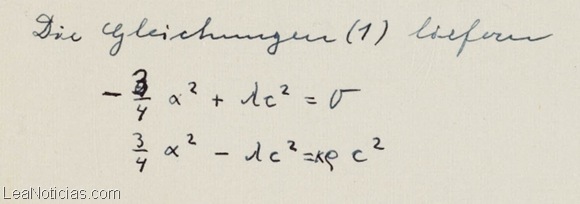 Die Gleichungen (1) liefern
- 3/4 α² + λc² = 0
3/4 α² - λc² = κρ c²
LeaNoticias.com